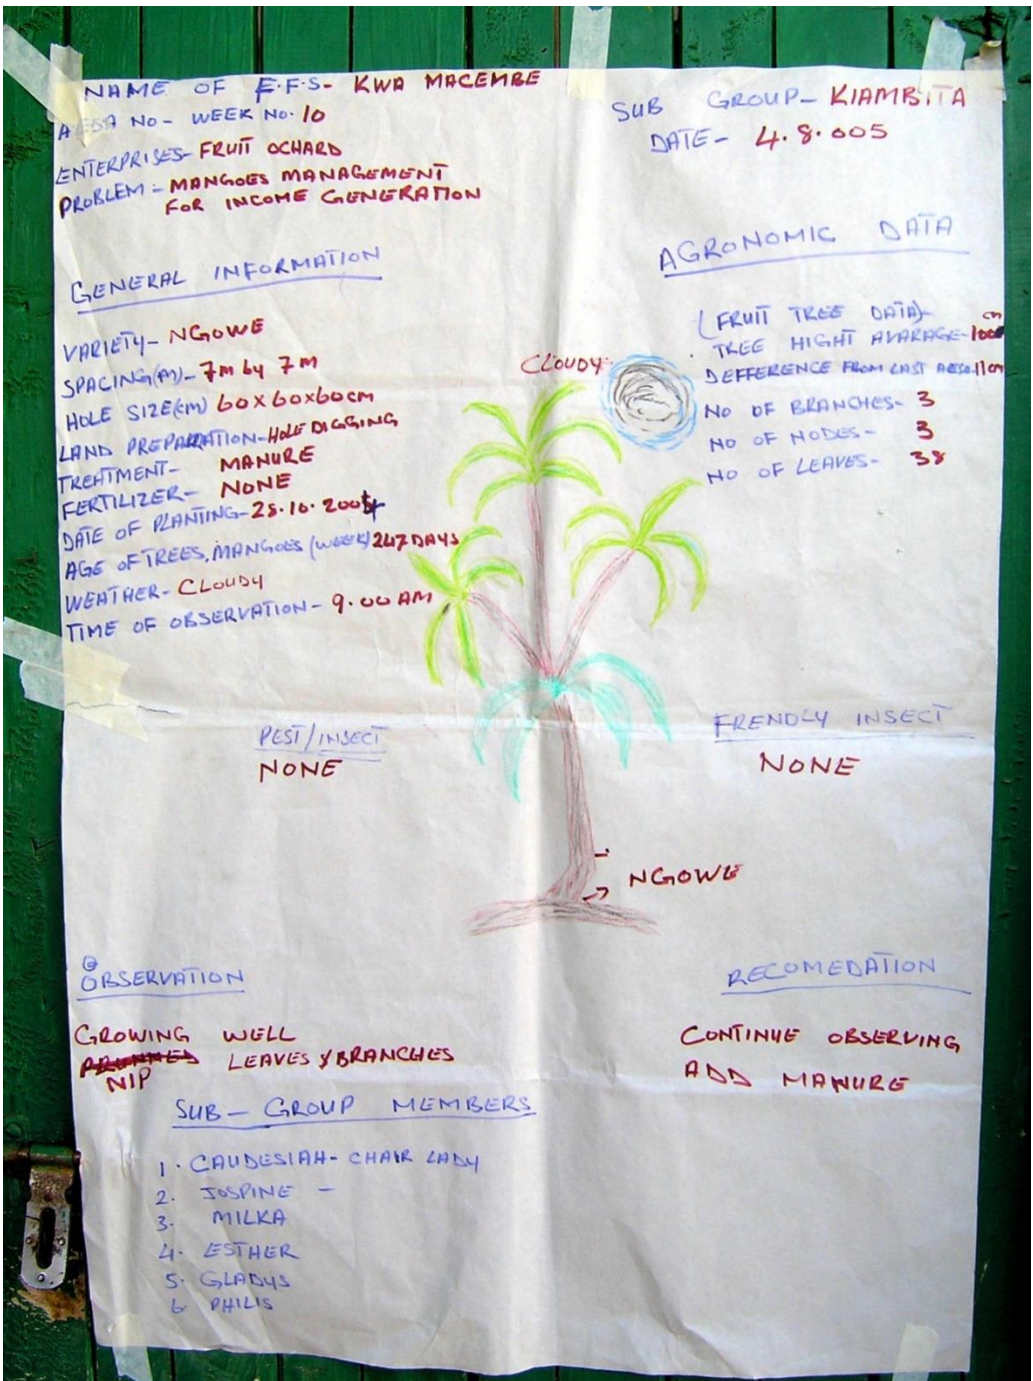 NAME OF F.F.S- KWA MACEMBE
AESA NO- WEEK NO. 10
ENTERPRISES- FRUIT OCHARD
PROBLEM:- MANGOES MANAGEMENT
FOR INCOME GENERATION
SUB GROUP- KIAMBITA
DATE- 4.8.005
GENERAL INFORMATION
VARIETY- NGOWE
SPACING(M)- 7m by 7m
HOLE SIZE(cm) 60x60x60cm
LAND PREPARATION-HOLE DIGGING
TREATMENT- MANURE
FERTILIZER- NONE
DATE OF PLANTING-28.10.2004
AGE OF TREES, MANGOES (WEEK) 247 DAYS
WEATHER- CLOUDY
TIME OF OBSERVATION- 9.00AM
AGRONOMIC DATA
(FRUIT TREE DATA)-
TREE HIGHT AVARAGE-100cm
DEFFERENCE FROM LAST AESA-11cm
NO OF BRANCHES- 3
NO OF NODES- 3
NO OF LEAVES- 38
CLOUDY
PEST/INSECT
NONE
FRENDLY INSECT
NONE
NGOWE
OBSERVATION
GROWING WELL
NIP LEAVES & BRANCHES
RECOMEDATION
CONTINUE OBSERVING
ADD MANURE
SUB- GROUP MEMBERS
1. CAUDESIAH- CHAIR LADY
2. JOSPINE -
3. MILKA
4. ESTHER
5. GLADYS
6. PHILIS